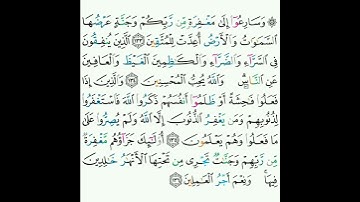 ۞ وَسَارِعُوٓا۟ إِلَىٰ مَغْفِرَةٍ مِّن رَّبِّكُمْ وَجَنَّةٍ عَرْضُهَا
ٱلسَّمَٰوَٰتُ وَٱلْأَرْضُ أُعِدَّتْ لِلْمُتَّقِينَ ١٣٣ ٱلَّذِينَ يُنفِقُونَ
فِى ٱلسَّرَّآءِ وَٱلضَّرَّآءِ وَٱلْكَٰظِمِينَ ٱلْغَيْظَ وَٱلْعَافِينَ
عَنِ ٱلنَّاسِ وَٱللَّهُ يُحِبُّ ٱلْمُحْسِنِينَ ١٣٤ وَٱلَّذِينَ إِذَا
فَعَلُوا۟ فَٰحِشَةً أَوْ ظَلَمُوٓا۟ أَنفُسَهُمْ ذَكَرُوا۟ ٱللَّهَ فَٱسْتَغْفَرُوا۟
لِذُنُوبِهِمْ وَمَن يَغْفِرُ ٱلذُّنُوبَ إِلَّا ٱللَّهُ وَلَمْ يُصِرُّوا۟ عَلَىٰ
مَا فَعَلُوا۟ وَهُمْ يَعْلَمُونَ ١٣٥ أُو۟لَٰٓئِكَ جَزَآؤُهُم مَّغْفِرَةٌ
مِّن رَّبِّهِمْ وَجَنَّٰتٌ تَجْرِى مِن تَحْتِهَا ٱلْأَنْهَٰرُ خَٰلِدِينَ
فِيهَا وَنِعْمَ أَجْرُ ٱلْعَٰمِلِينَ ١٣٦